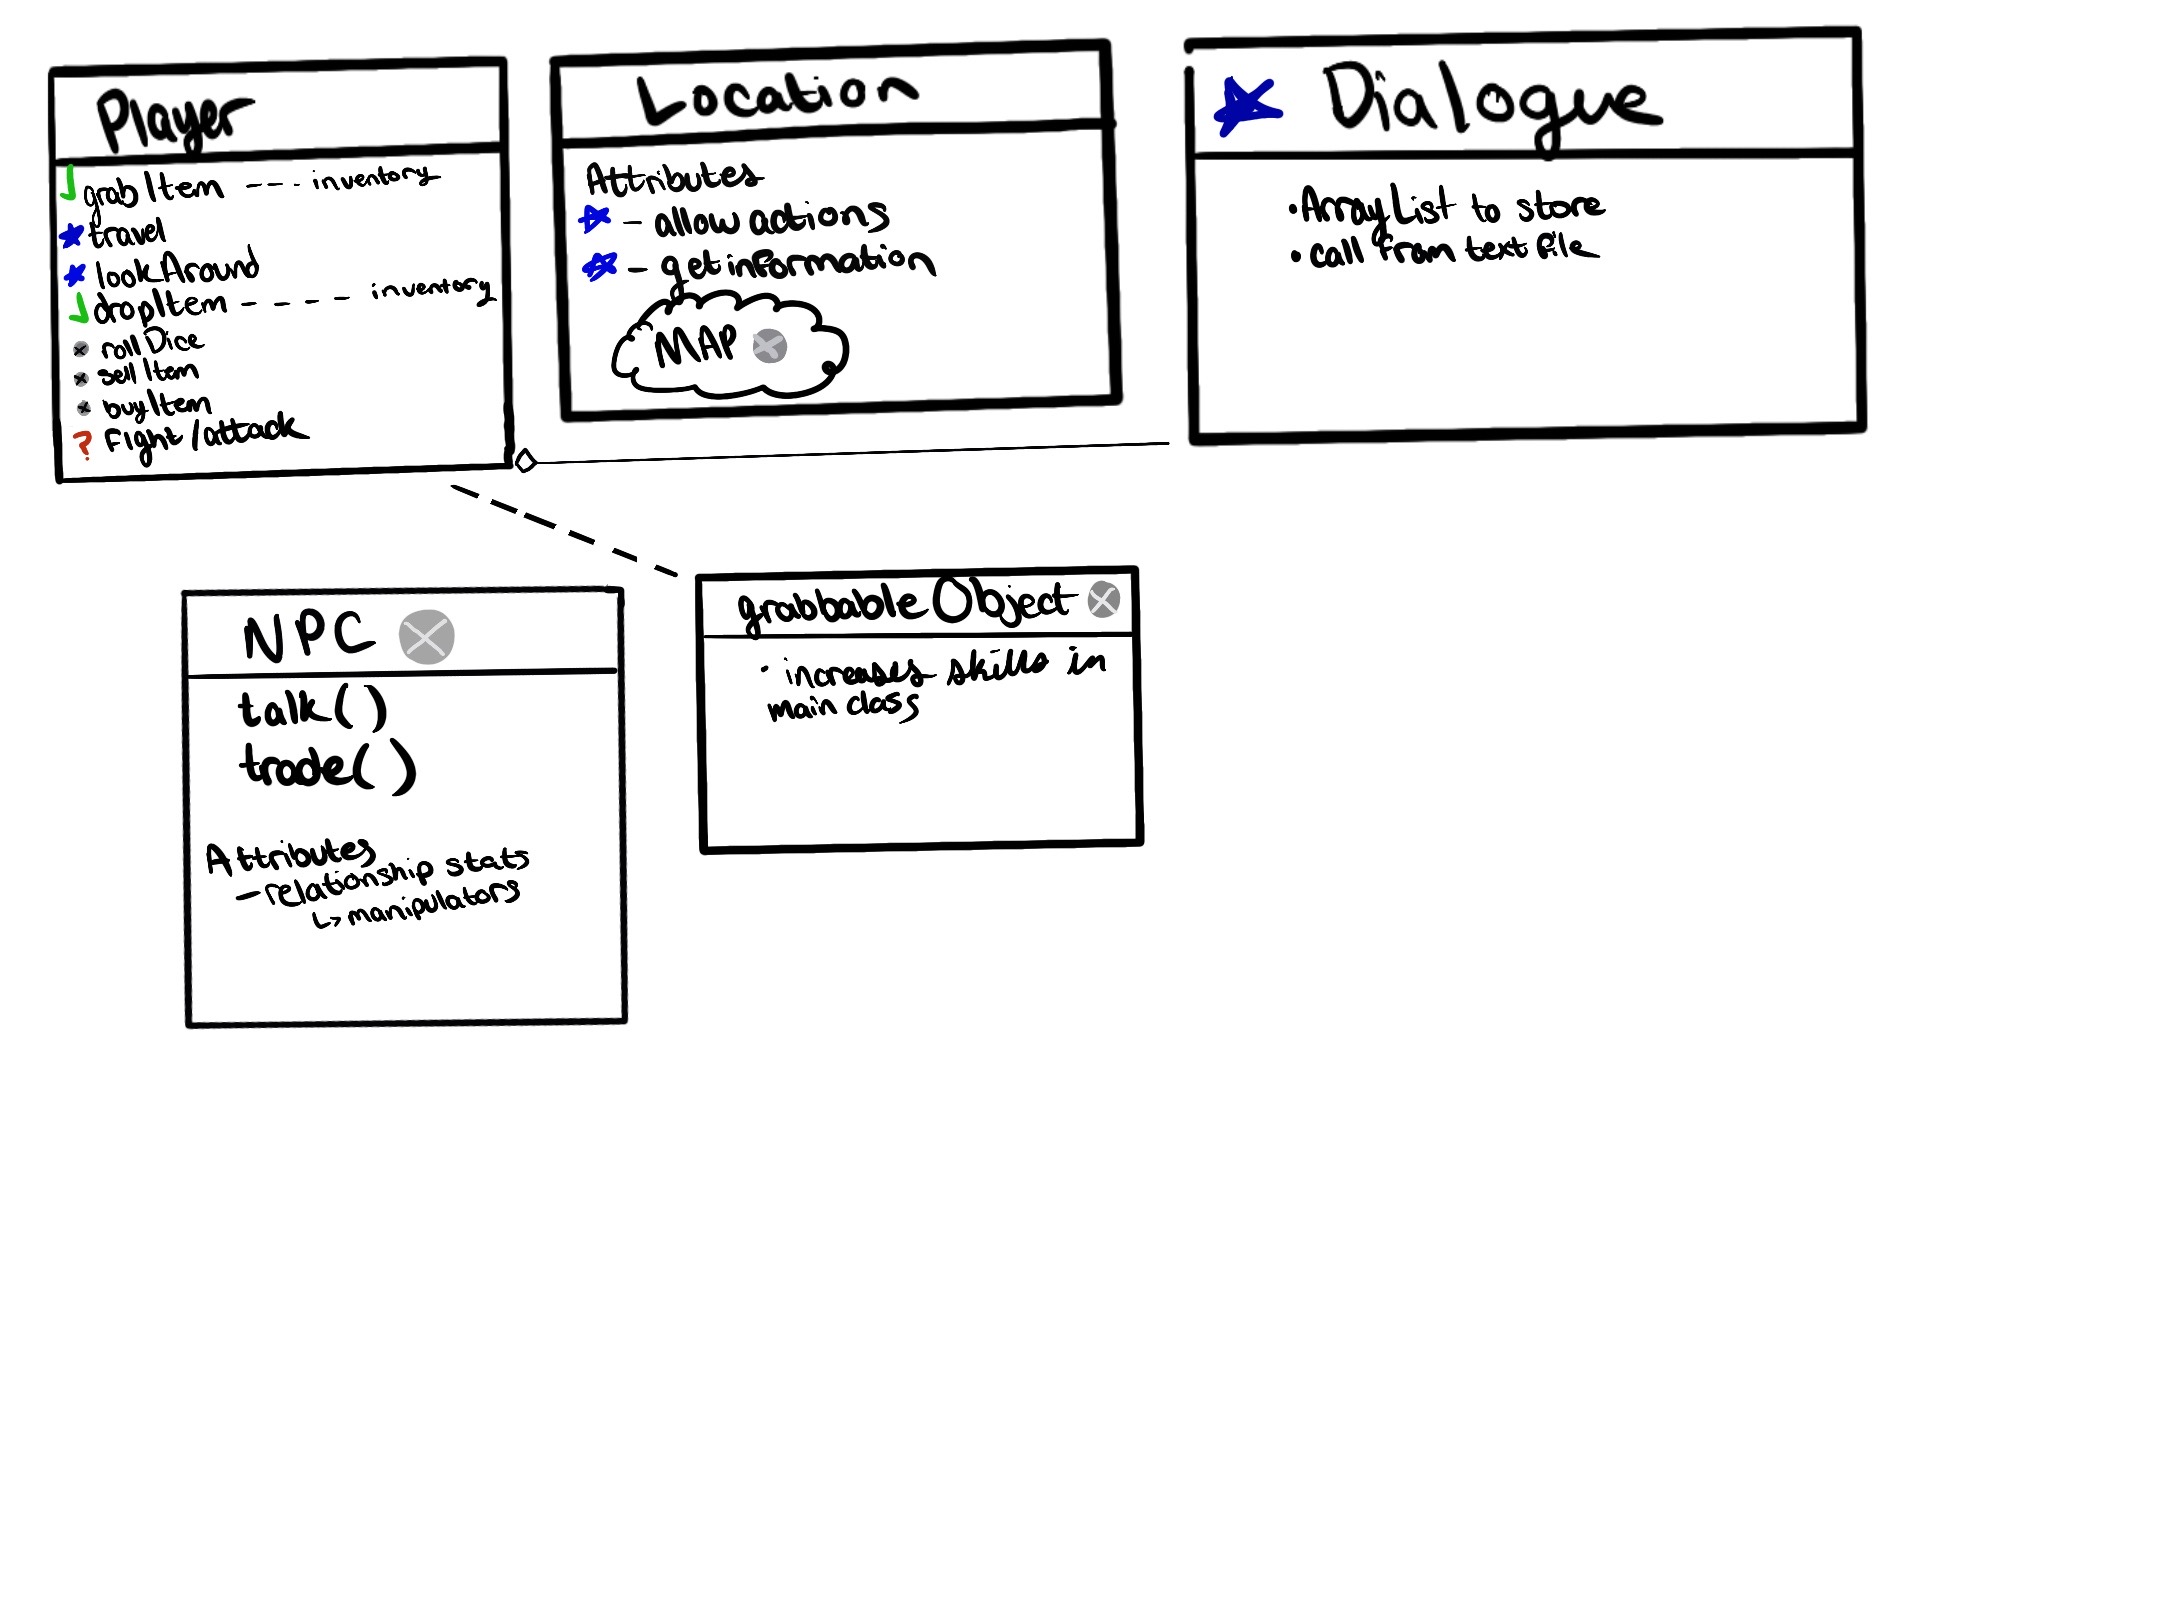 Player
grabItem --- inventory
travel
lookAround
dropItem ---- inventory
rollDice
sellItem
buyItem
? Fight/attack
Location
Attributes
- allow actions
- get information
MAP
Dialogue
• ArrayList to store
• call from text file
NPC
talk()
trade()
Attributes
- relationship stats
↳ manipulators
grabbableObject
· increases skills in
main class